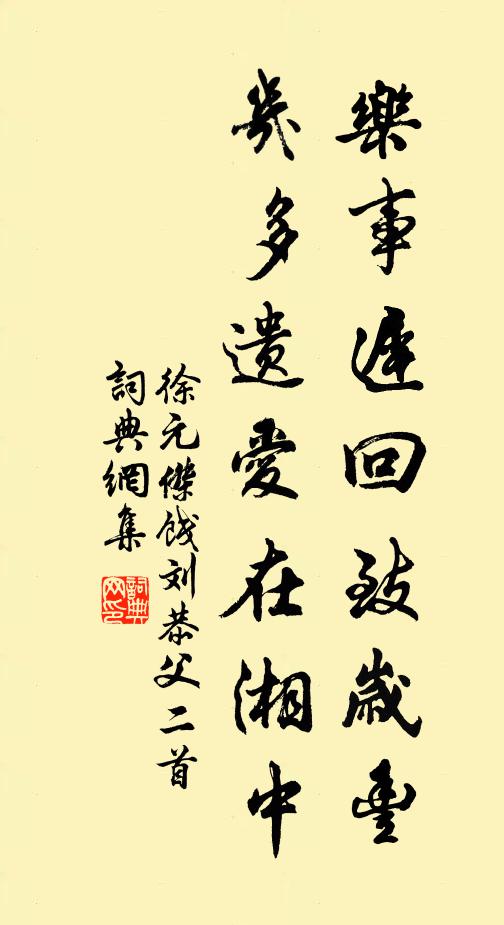 樂事遲回致歲豐
幾多遺愛在湘中
徐元傑餞刘恭父二首
詞典網集
詞典网印